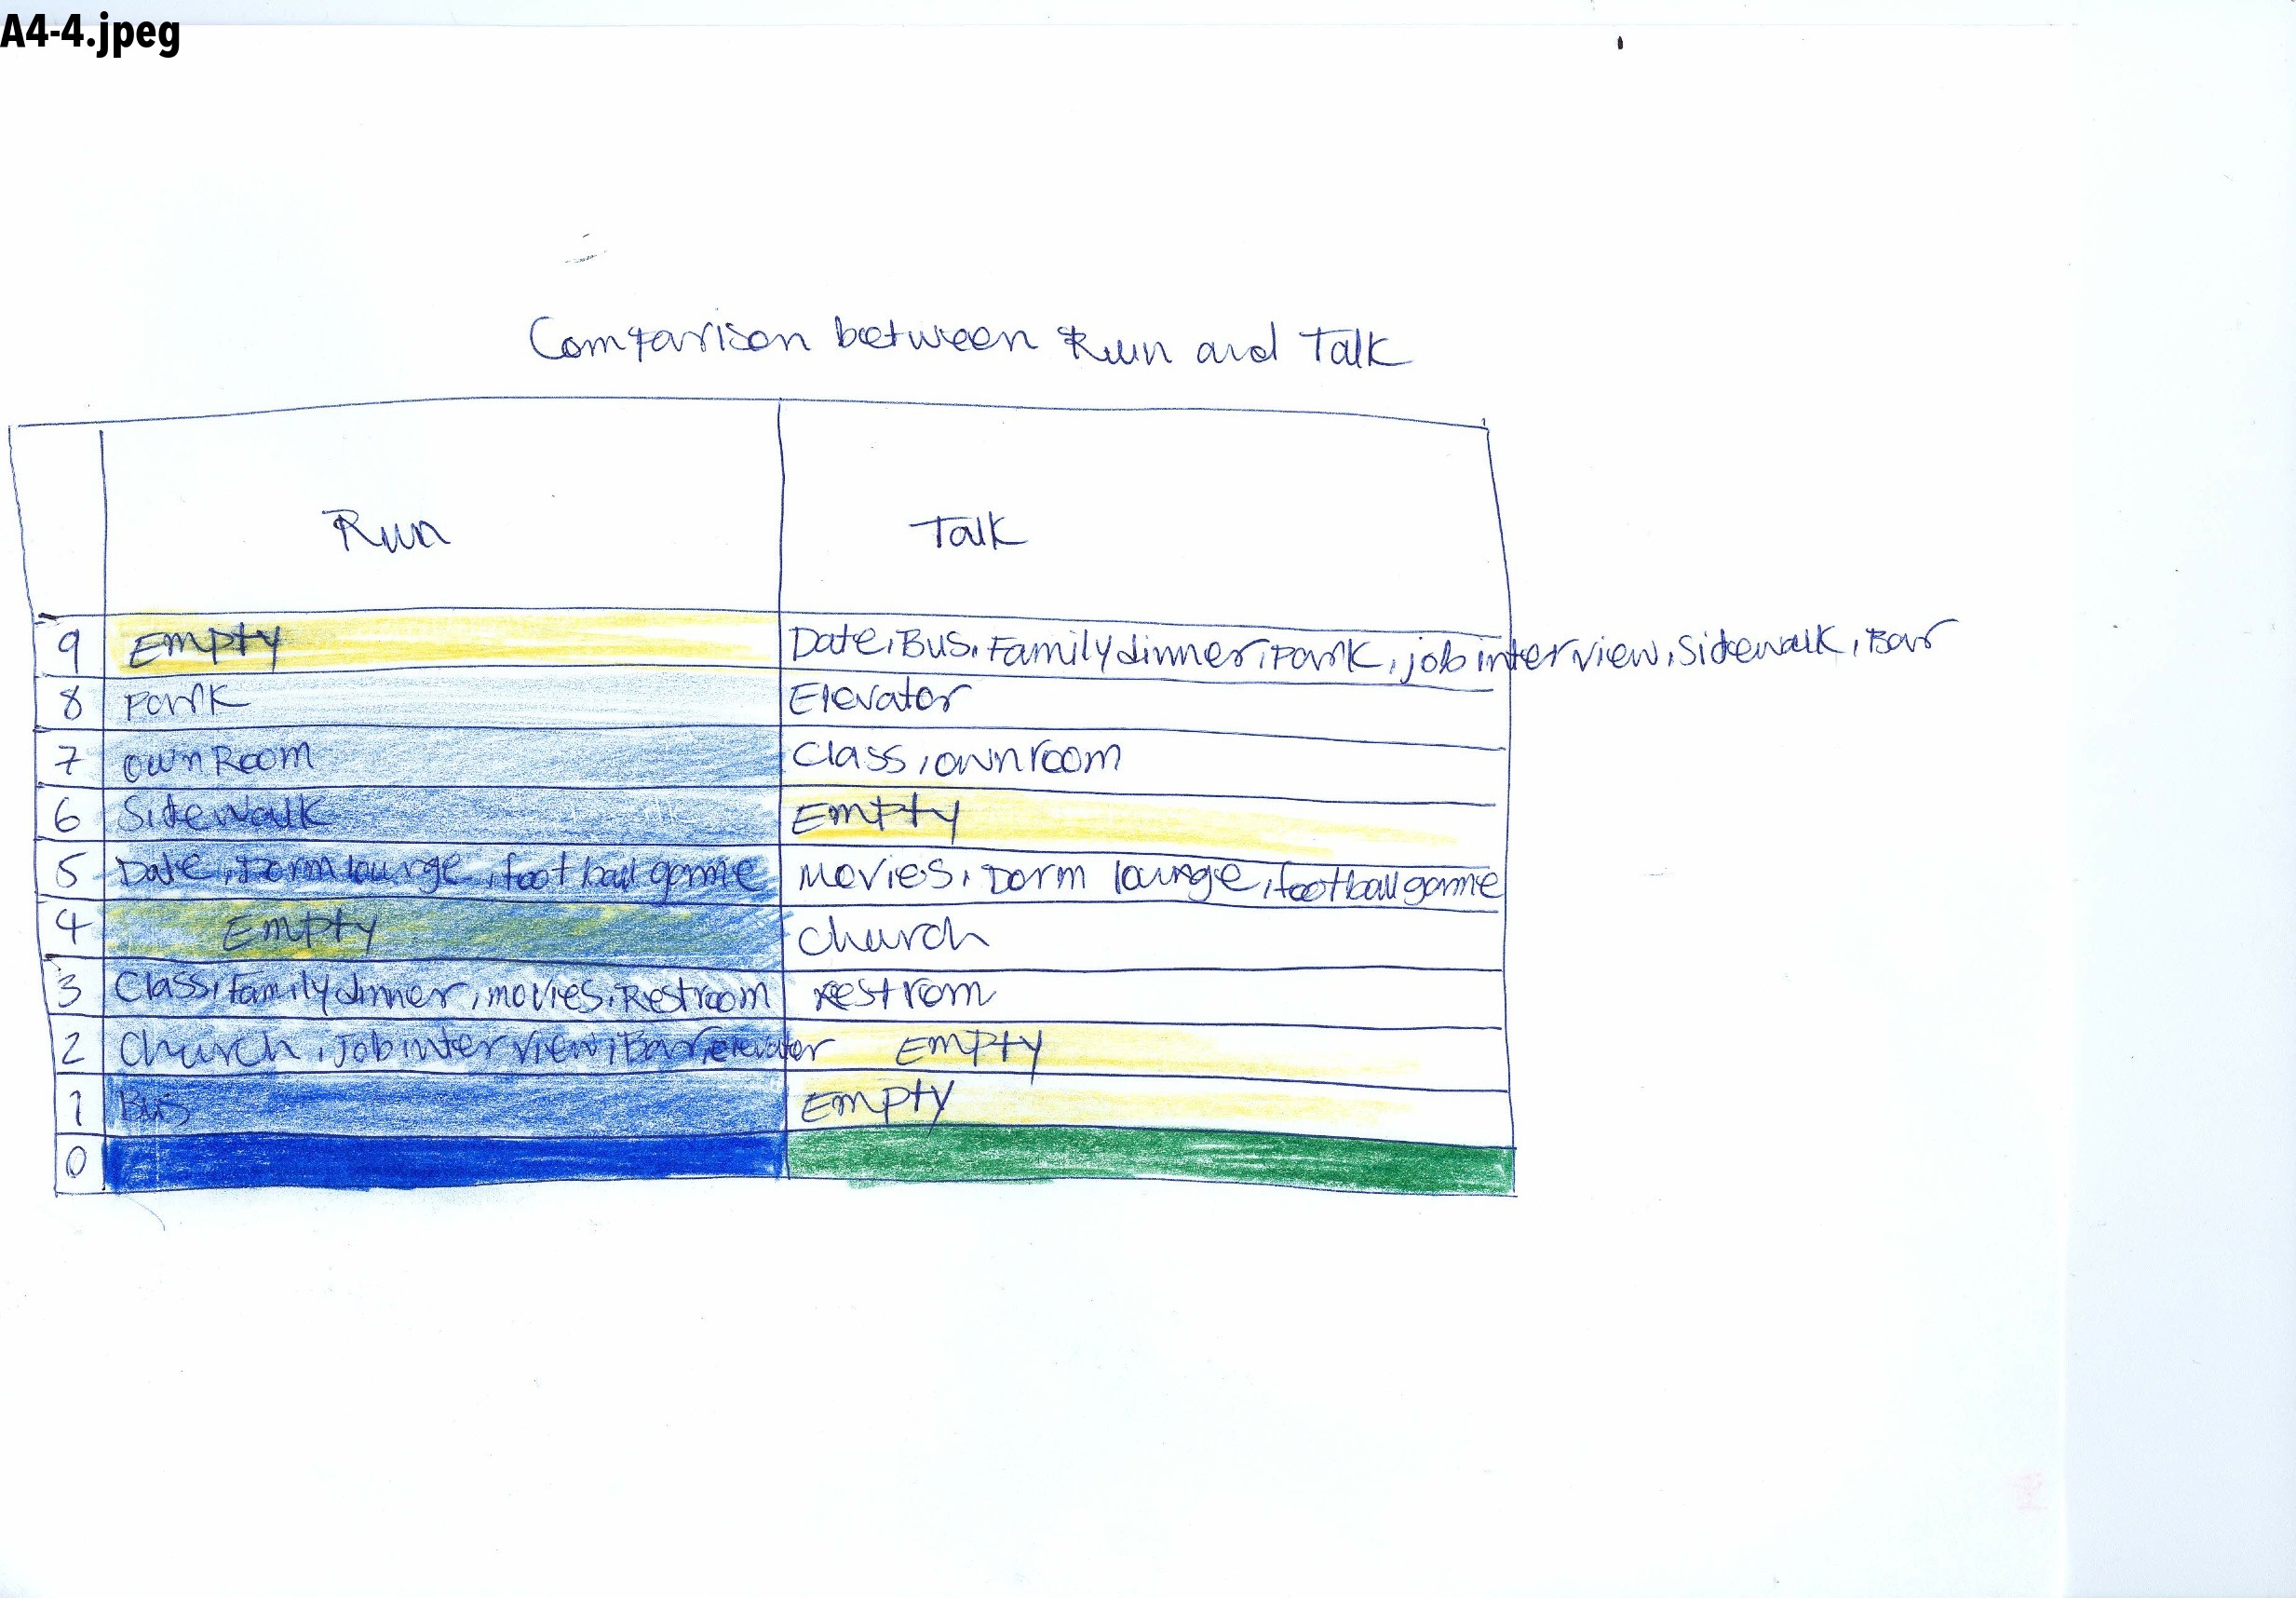 A4-4.jpeg
Comparison between Run and Talk
Run Talk
9 Empty Date, Bus, Family dinner, Park, job interview, Sidewalk, Bar
8 Park Elevator
7 own Room Class, own room
6 Sidewalk Empty
5 Date, Dorm lounge, football game Movies, Dorm lounge, football game
4 Empty Church
3 Class, family dinner, movies, Restroom Restrom
2 Church, Job interview, Bar, elevator Empty
1 Bus Empty
0